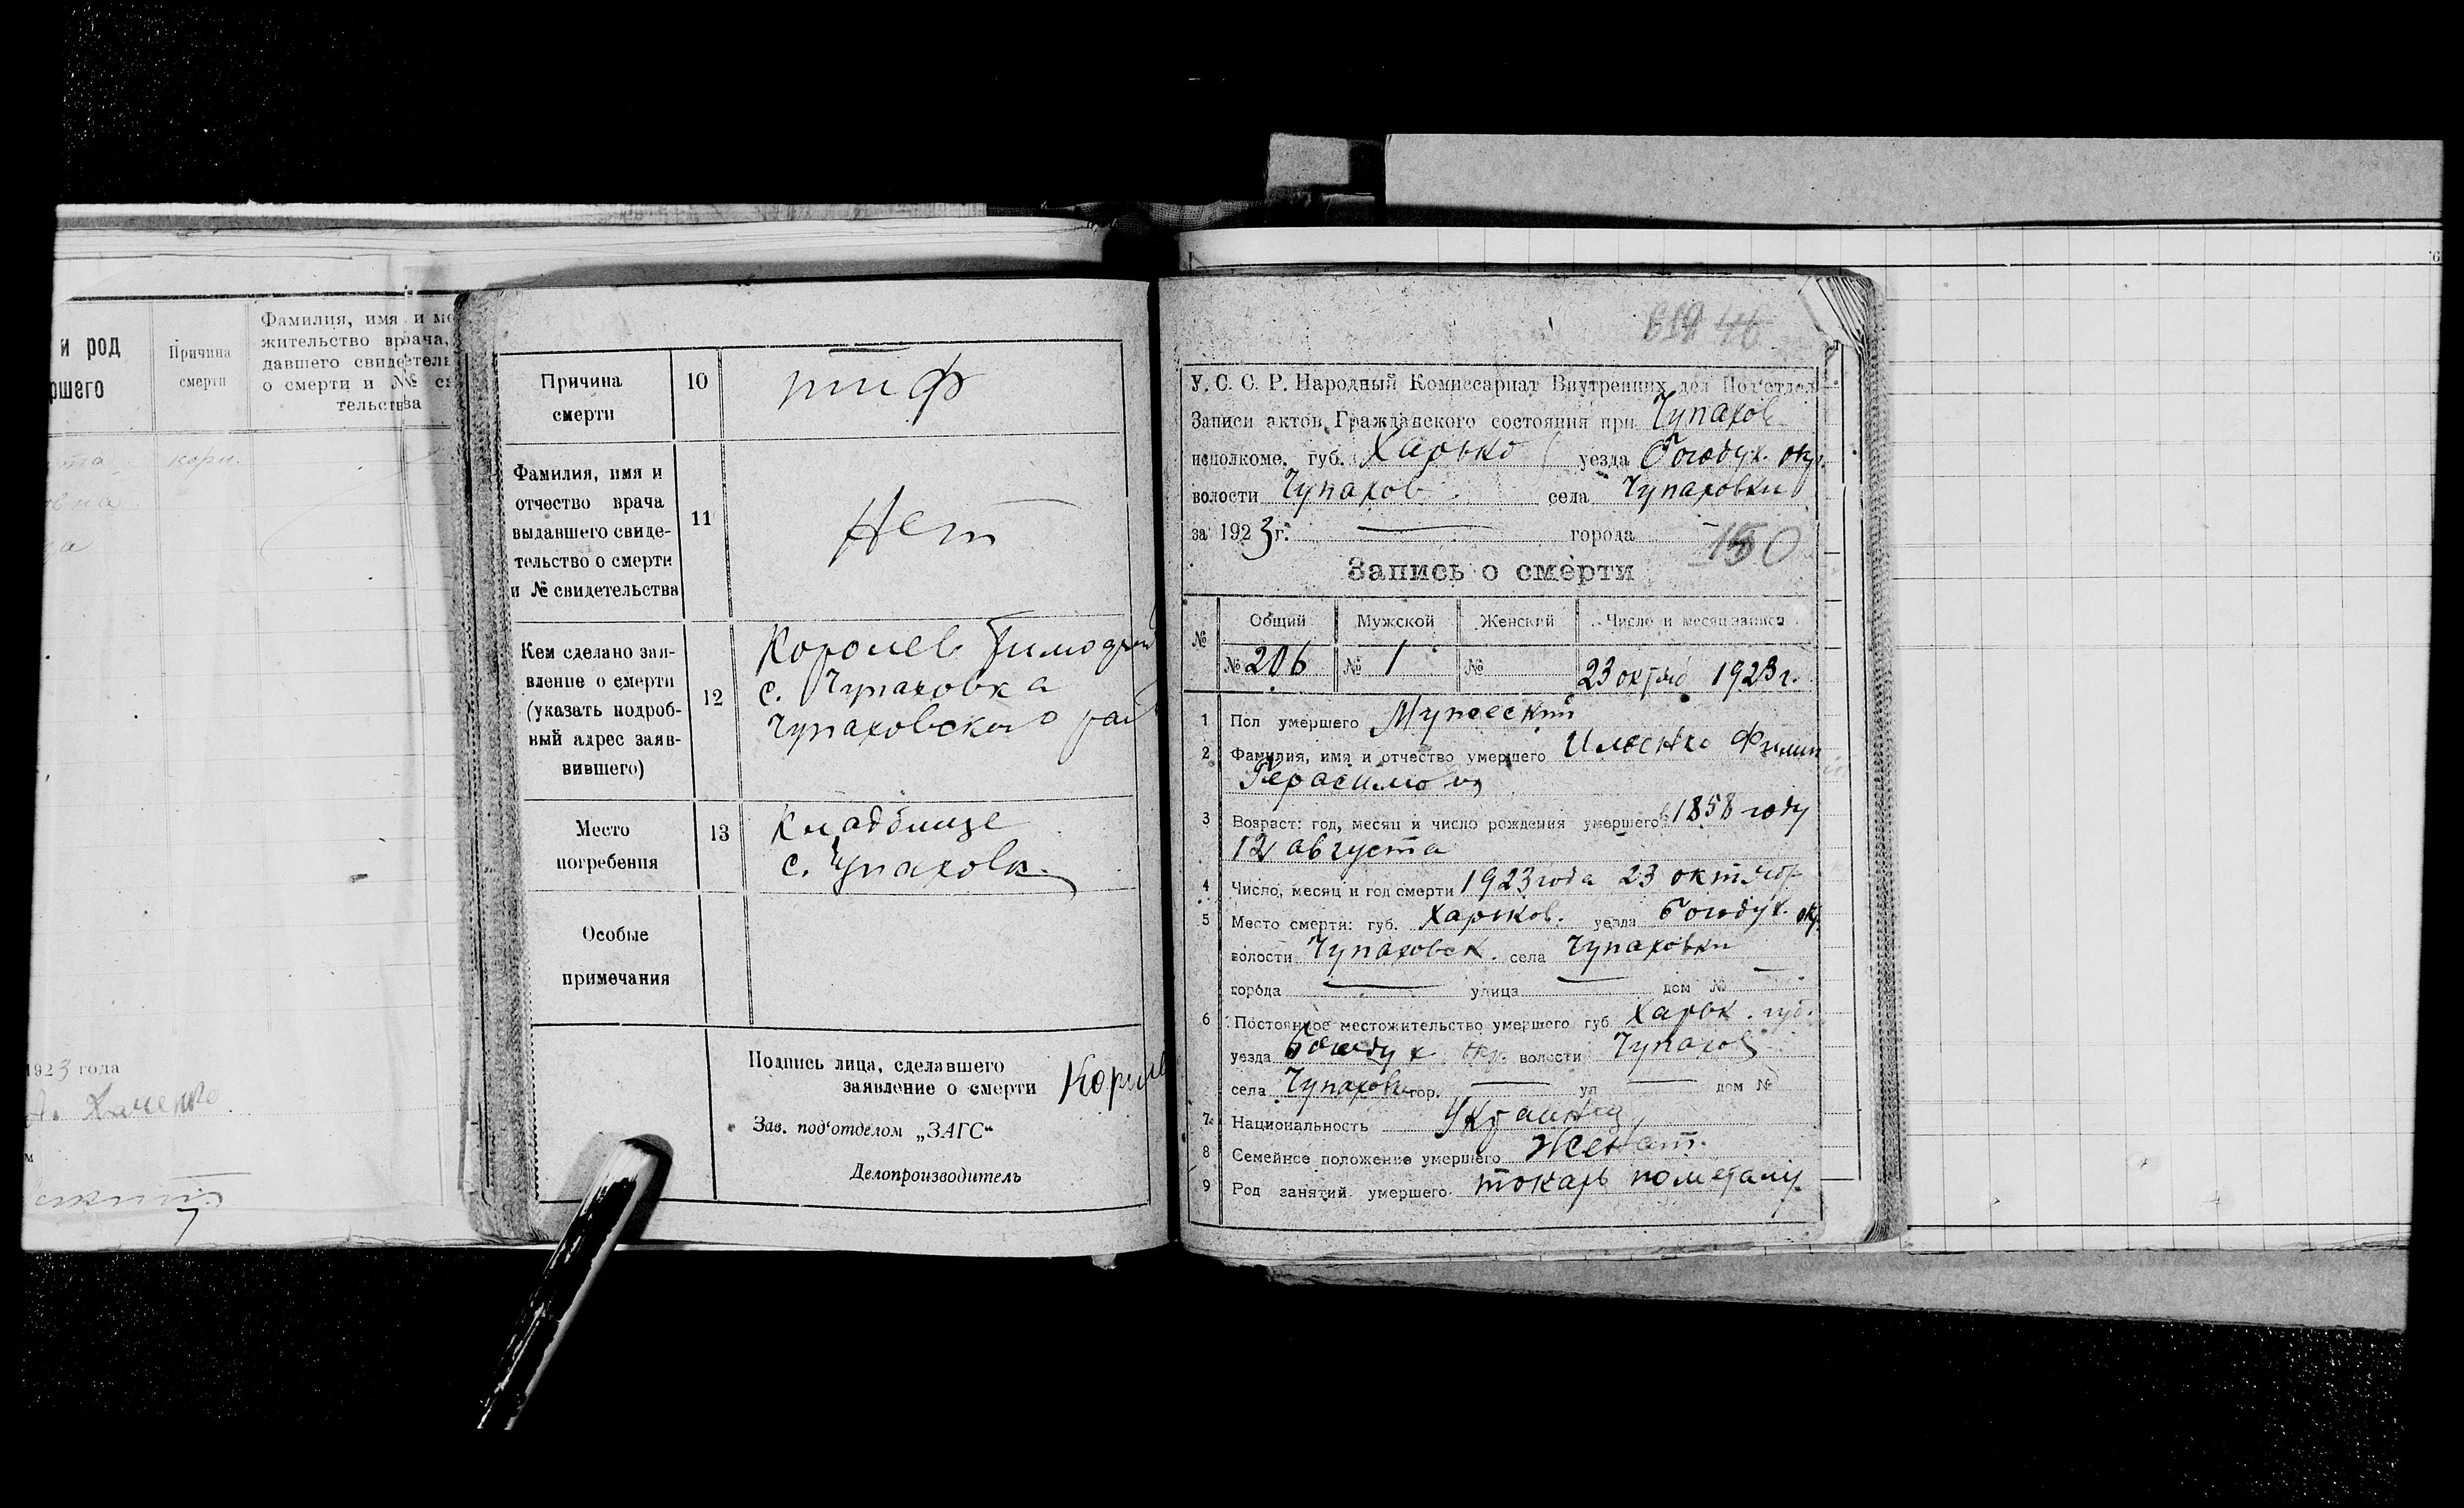 и род
ршего
Причина
смерти
Фамилия, имя и ме
жительство врача,
давшего свидетель
о смерти и №№ св
тельства
та
кори.
овна
на
1923 года
Причина
смерти
10
тиф
Фамилия, имя и
отчество врача
выдавшего свиде-
тельство о смерти
и № свидетельства
11
Нет
Кем сделано зая-
вление о смерти
(указать подроб-
ный адрес заяв-
вившего)
12
Королев Тимофей
с. Чупаховка
Чупаховского рай
Место
погребения
13
Кладбище
с. Чупаховк.
Особые
примечания
Подпись лица, сделавшего
заявление о смерти Короле
Зав. под'отделом „ЗАГС“
Делопроизводитель
У. С. С. Р. Народный Комиссариат Внутренних дел Под'отдел
Записи актов Гражданского состояния при Чупахов
исполкоме. губ. Харько уезда Богодух. окр.
волости Чупахов. села Чупаховки
за 1923 г. — города
150
Запись о смерти
№ Общий Мужской Женский Число и месяц записи
№ 206 № 1 № 23 октяб 1923 г.
1 Пол умершего Мужеский
2 Фамилия, имя и отчество умершего Ильенко Филип
Герасимов
3 Возраст: год, месяц и число рождения умершего 1858 году
12 августа
4 Число, месяц и год смерти 1923 года 23 октябр
5 Место смерти: губ. Харьков. уезда Богодух. окр.
волости Чупаховск. села Чупаховки
города — улица — дом № —
6 Постоянное местожительство умершего губ. Харьк. губ.
уезда Богодух. окр. волости Чупахов
села Чупаховк гор. — ул — дом №
7 Национальность Украинец
8 Семейное положение умершего Женат.
9 Род занятий умершего токарь по металу